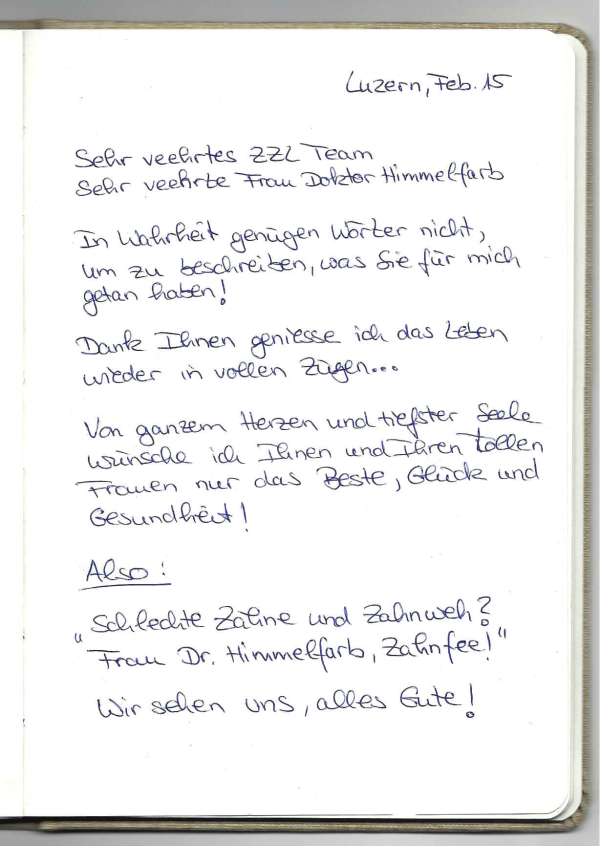 Luzern, Feb. 15
Sehr veehrtes ZZL Team
Sehr veehrte Frau Doktor Himmelfarb
In Wahrheit genügen Wörter nicht,
um zu beschreiben, was Sie für mich
getan haben!
Dank Ihnen geniesse ich das Leben
wieder in vollen Zügen...
Von ganzem Herzen und tiefster Seele
wünsche ich Ihnen und Ihren tollen
Frauen nur das Beste, Glück und
Gesundheit!
Also:
„Schlechte Zähne und Zahnweh?
Frau Dr. Himmelfarb, Zahnfee!“
Wir sehen uns, alles Gute!